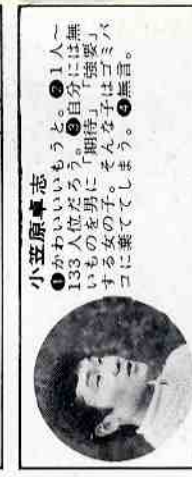 小笠原卓志
❶かわいいいもうと。❷1人〜
133人位だろう。❸自分には無
いものを男に「期待」「強要」
する女の子。そんな子はゴミバ
コに棄ててしまう。❹無言。